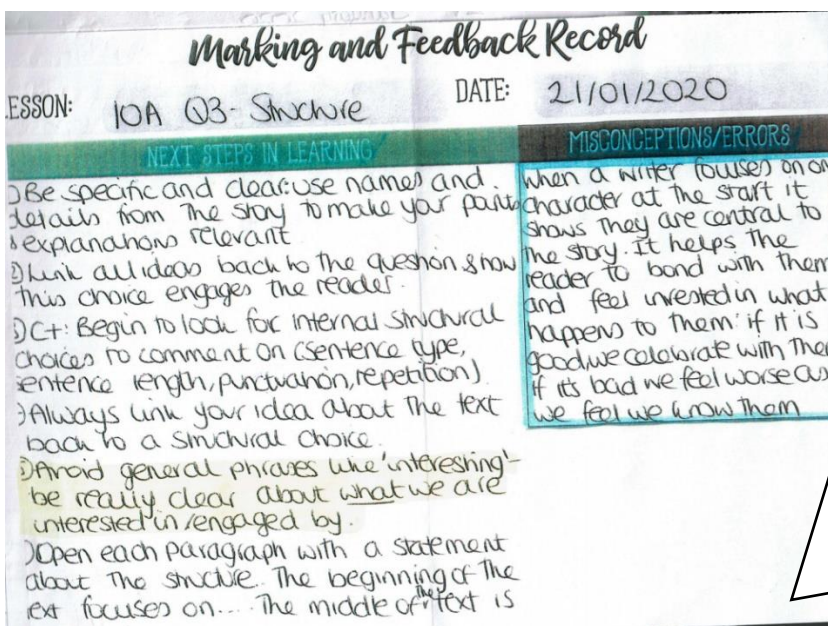 Marking and Feedback Record
ESSON: 10A Q3- Structure DATE: 21/01/2020
NEXT STEPS IN LEARNING
Be specific and clear: use names and
details from the story to make your points
& explanations relevant
2) Link all ideas back to the question & how
this choice engages the reader.
3) C+: Begin to look for internal structural
choices to comment on (sentence type,
sentence length, punctuation, repetition)
Always link your idea about the text
back to a structural choice.
5) Avoid general phrases like 'interesting'-
be really clear about what we are
interested in/engaged by.
Open each paragraph with a statement
about the structure. The beginning of the
text focuses on.... The middle of the text is
MISCONCEPTIONS/ERRORS
When a writer focuses on on
character at the start it
shows they are central to
the story. It helps the
reader to bond with them
and feel invested in what
happens to them: if it is
good, we celebrate with them
if its bad we feel worse as
we feel we know them